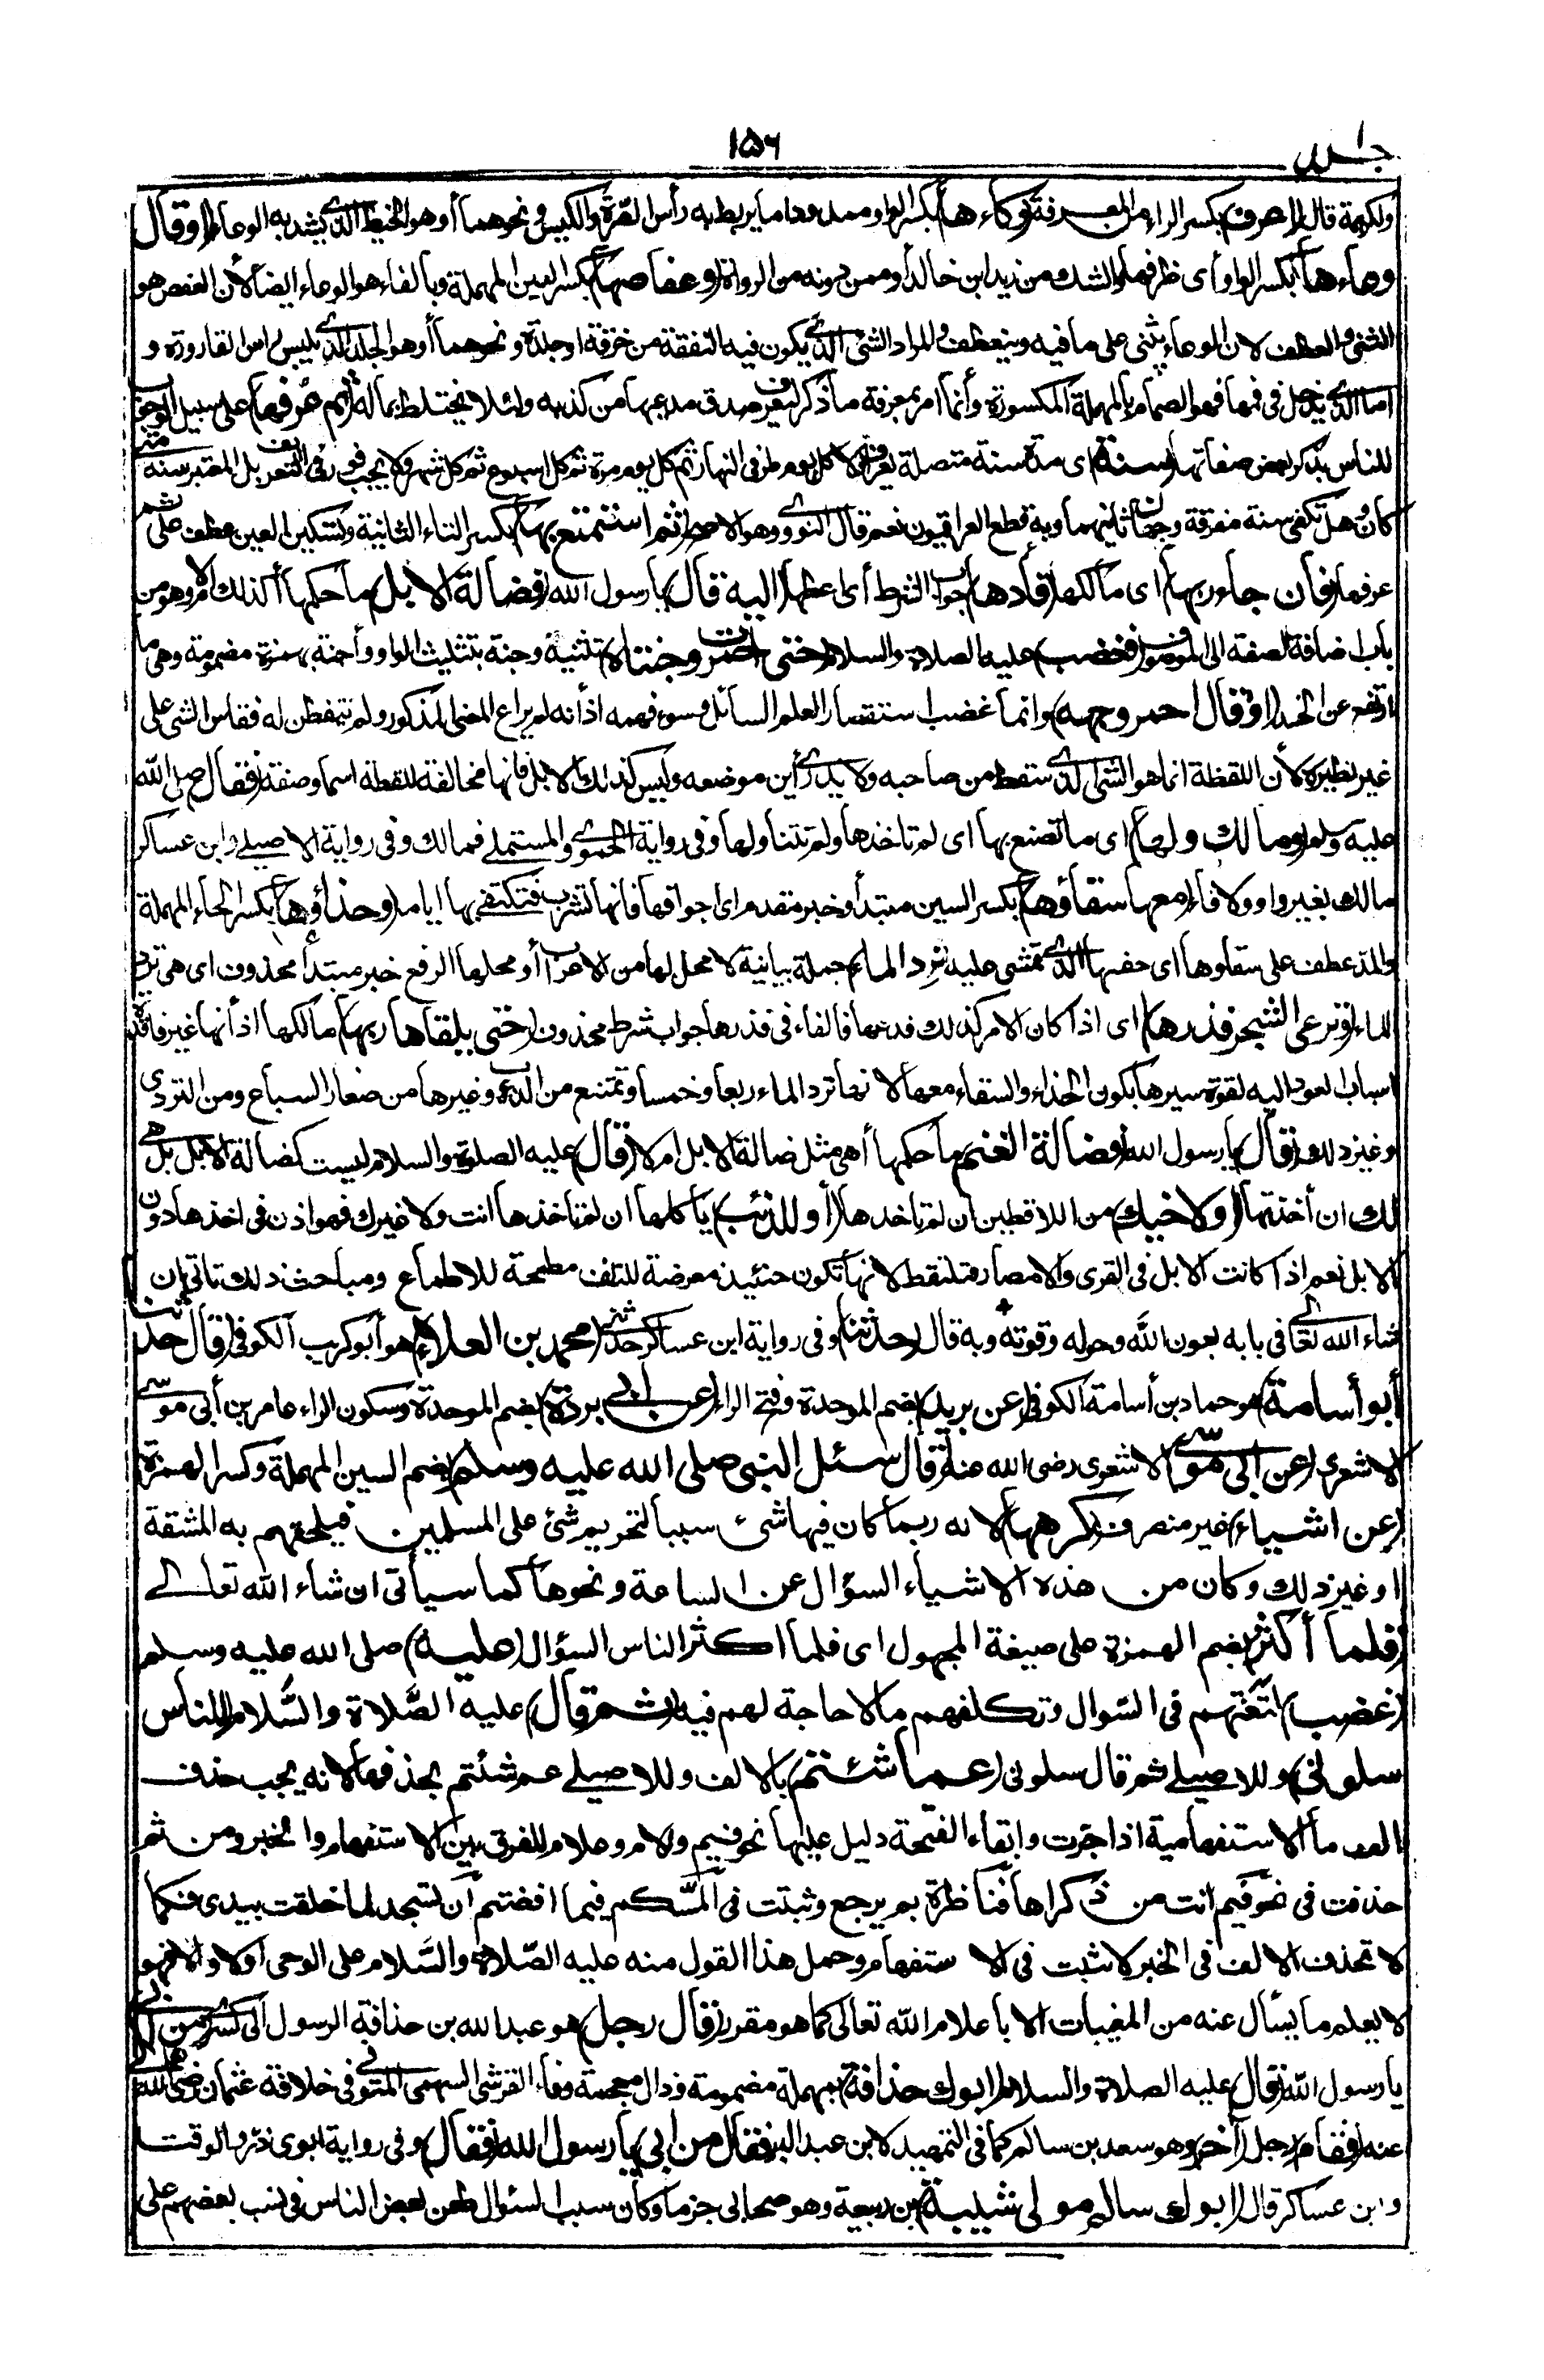 ١٥٦
ولكريمة قال (اعرف) بكسر الراء من المعرفة (وكاءها) بكسر الواو ممدودا ما يربط به رأس الصرة والكيس ونحوهما أو هو الخيط الذي يشد به الوعاء (أو قال
وعاءها) بكسر الواو أى ظرفها والشك من زيد ابن خالد أو ممن دونه من الرواة (وعفاصها) بكسر العين المهملة وبالفاء هو الوعاء ايضا لأن العفص هو
الثنى والعطف لان الوعاء يثنى على ما فيه وينعطف والمراد الشئ الذي يكون فيه النفقة من خرقة او جلدة ونحوهما أو هو الجلد الذي يلبس رأس القارورة و
اما الذي يدخل فى فمها فهو الصمام بالمهملة المكسورة وأنما أمر بمعرفة ما ذكر ليعرف صدق مدعيها من كذبه ولئلا يختلط بماله (ثم عرفها) على سبيل الوجوب
للناس بذكر بعض صفاتها (سنة) اى مدة سنة متصلة يعرفها كل يوم طرفى النهار ثم كل يوم مرة ثم كل اسبوع ثم كل شهر ولا يجب فور فى التعريف بل المعتبر سنة متى
كان وهل تكفى سنة مفرقة وجهان ثانيهما وبه قطع العراقيون نعم قال النووي وهو الاصح (ثم استمتع بها) بكسر التاء الثانية وتسكين العين عطف على ثم
عرفها (فان جاء ربها) اى مالكها (فأدها) جواب الشرط أى اعطها (اليه قال) يا رسول الله (فضالة الابل) ما حكمها أكذلك الامر وهو من
باب اضافة الصفة الى الموصوف (فغضب) عليه الصلاة والسلام (حتى احمرت وجنتاه) تثنية وجنة بتثليث الواو وأجنة بهمزة مضمومة وهى ما
ارتفع عن الخد (او قال احمر وجهه) وانما غضب استقصارا لعلم السائل وسوء فهمه اذ أنه لم يراع المعنى المذكور ولم يتفطن له فقاس الشئ على
غير نظيره لأن اللقطة انما هو الشئ الذي سقط من صاحبه ولا يدرى أين موضعه وليس كذلك الابل فانها مخالفة للقطة اسما وصفة (فقال) صلى الله
عليه وسلم (وما لك ولها) اى ما تصنع بها اى لم تاخذها ولم تتناولها وفى رواية الحموي والمستملى فمالك وفى رواية الاصيلى وابن عساكر
مالك بغير واو ولا فاء (معها سقاؤها) بكسر السين مبتدأ وخبر مقدم اى اجوافها فانها تشرب فتكتفى بها اياما (وحذاؤها) بكسر الحاء المهملة
والمد عطف على سقاوها اى خفها الذي تمشى عليه (ترد الماء) جملة بيانية لا محل لها من الاعراب أو محلها الرفع خبر مبتدأ محذوف اى هى ترد
الماء (وترعى الشجر فذرها) اى اذا كان الامر كذلك فدعها فالفاء فى فذرها جواب شرط محذوف (حتى يلقاها ربها) مالكها اذ أنها غير فاقدة
اسباب العود اليه لقوة سيرها بكون الحذاء والسقاء معها لانها ترد الماء ربعا وخمسا وتمتنع من الذئاب وغيرها من صغار السباع ومن التردى
وغير ذلك (قال) يا رسول الله (فضالة الغنم) ما حكمها أهى مثل ضالة الابل ام لا (قال) عليه الصلوة والسلام ليست كضالة الابل بل هى
لك ان أخذتها (ولاخيك) من اللاقطين ان لم تاخذها (أو للذئب) يأكلها ان لم تاخذها انت ولا غيرك فهو اذن فى اخذها دون
الابل نعم اذا كانت الابل فى القرى والامصار فتلتقط لانها تكون حنئيذ معرضة للتلف مطمحة للاطماع ومباحث ذلك تاتى ان
شاء الله تعالى فى بابه بعون الله وحوله وقوته وبه قال (حدثنا) وفى رواية ابن عساكر حدثنى (محمد بن العلاء) هو أبو كريب الكوفى (قال حدثنا
أبو أسامة) هو حماد بن أسامة الكوفى (عن بريد) بضم الموحدة وفتح الراء (عن ابى بردة) بضم الموحدة وسكون الراء عامر بن أبى موسى
الاشعرى (عن ابى موسى) الاشعرى رضى الله عنه (قال سئل النبى صلى الله عليه وسلم) بضم السين المهملة وكسر الهمزة
(عن اشياء) غير منصرف (كرهها) لانه ربما كان فيها شئ سببا لتحريم شئ على المسلمين فيلحقهم به المشقة
او غير ذلك وكان من هذه الاشياء السؤال عن الساعة ونحوها كما سيأتى ان شاء الله تعالى
(فلما أكثر) بضم الهمزة على صيغة المجهول اى فلما اكثر الناس السؤال (عليه) صلى الله عليه وسلم
(غضب) لتعنتهم فى السوال وتكلفهم ما لا حاجة لهم فيه (ثم قال) عليه الصّلاة والسّلام (للناس
سلونى) وللاصيلى ثم قال سلونى (عما شئتم) بالالف وللاصيلى عم شئتم بحذفها لانه يجب حذف
الف ما الاستفهامية اذا جرت وابقاء الفتحة دليل عليها نحو فيم ولام وعلام للفرق بين الاستفهام والخبر ومن ثم
حذفت فى نحو فيم انت من ذكراها فناظرة بم يرجع وثبتت فى لمسّكم فيما افضتم أن تسجد لما خلقت بيدى فكما
لا تحذف الالف فى الخبر لا تثبت فى الاستفهام وحمل هذا القول منه عليه الصّلاة والسّلام على الوحى اولا والا فهو
لا يعلم ما يسأل عنه من المغيبات الا باعلام الله تعالى كما هو مقرر (قال رجل) هو عبد الله بن حذافة الرسول الى كسرى (من أبى)
يا رسول الله (قال) عليه الصلاة والسلام (ابوك حذافة) بمهملة مضمومة وذال معجمة وفاء القرشى السهمى المتوفى فى خلافة عثمان رضى الله تعالى
عنه (فقام) رجل (آخر) وهو سعد بن سالم كما فى التمهيد لابن عبد البر (فقال من ابى يا رسول الله (فقال) وفى رواية ابوى ذر والوقت
وابن عساكر قال (ابوك سالم مولى شيبة) بن ربيعة وهو صحابى جزما وكان سبب السئوال طعن بعض الناس فى نسب بعضهم على